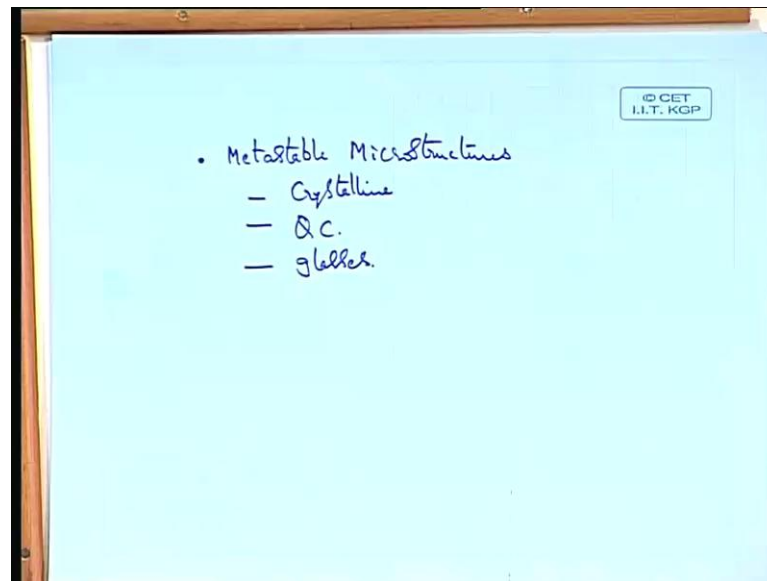 © CET
I.I.T. KGP
• Metastable Microstructures
— Crystalline
— QC.
— glasses.